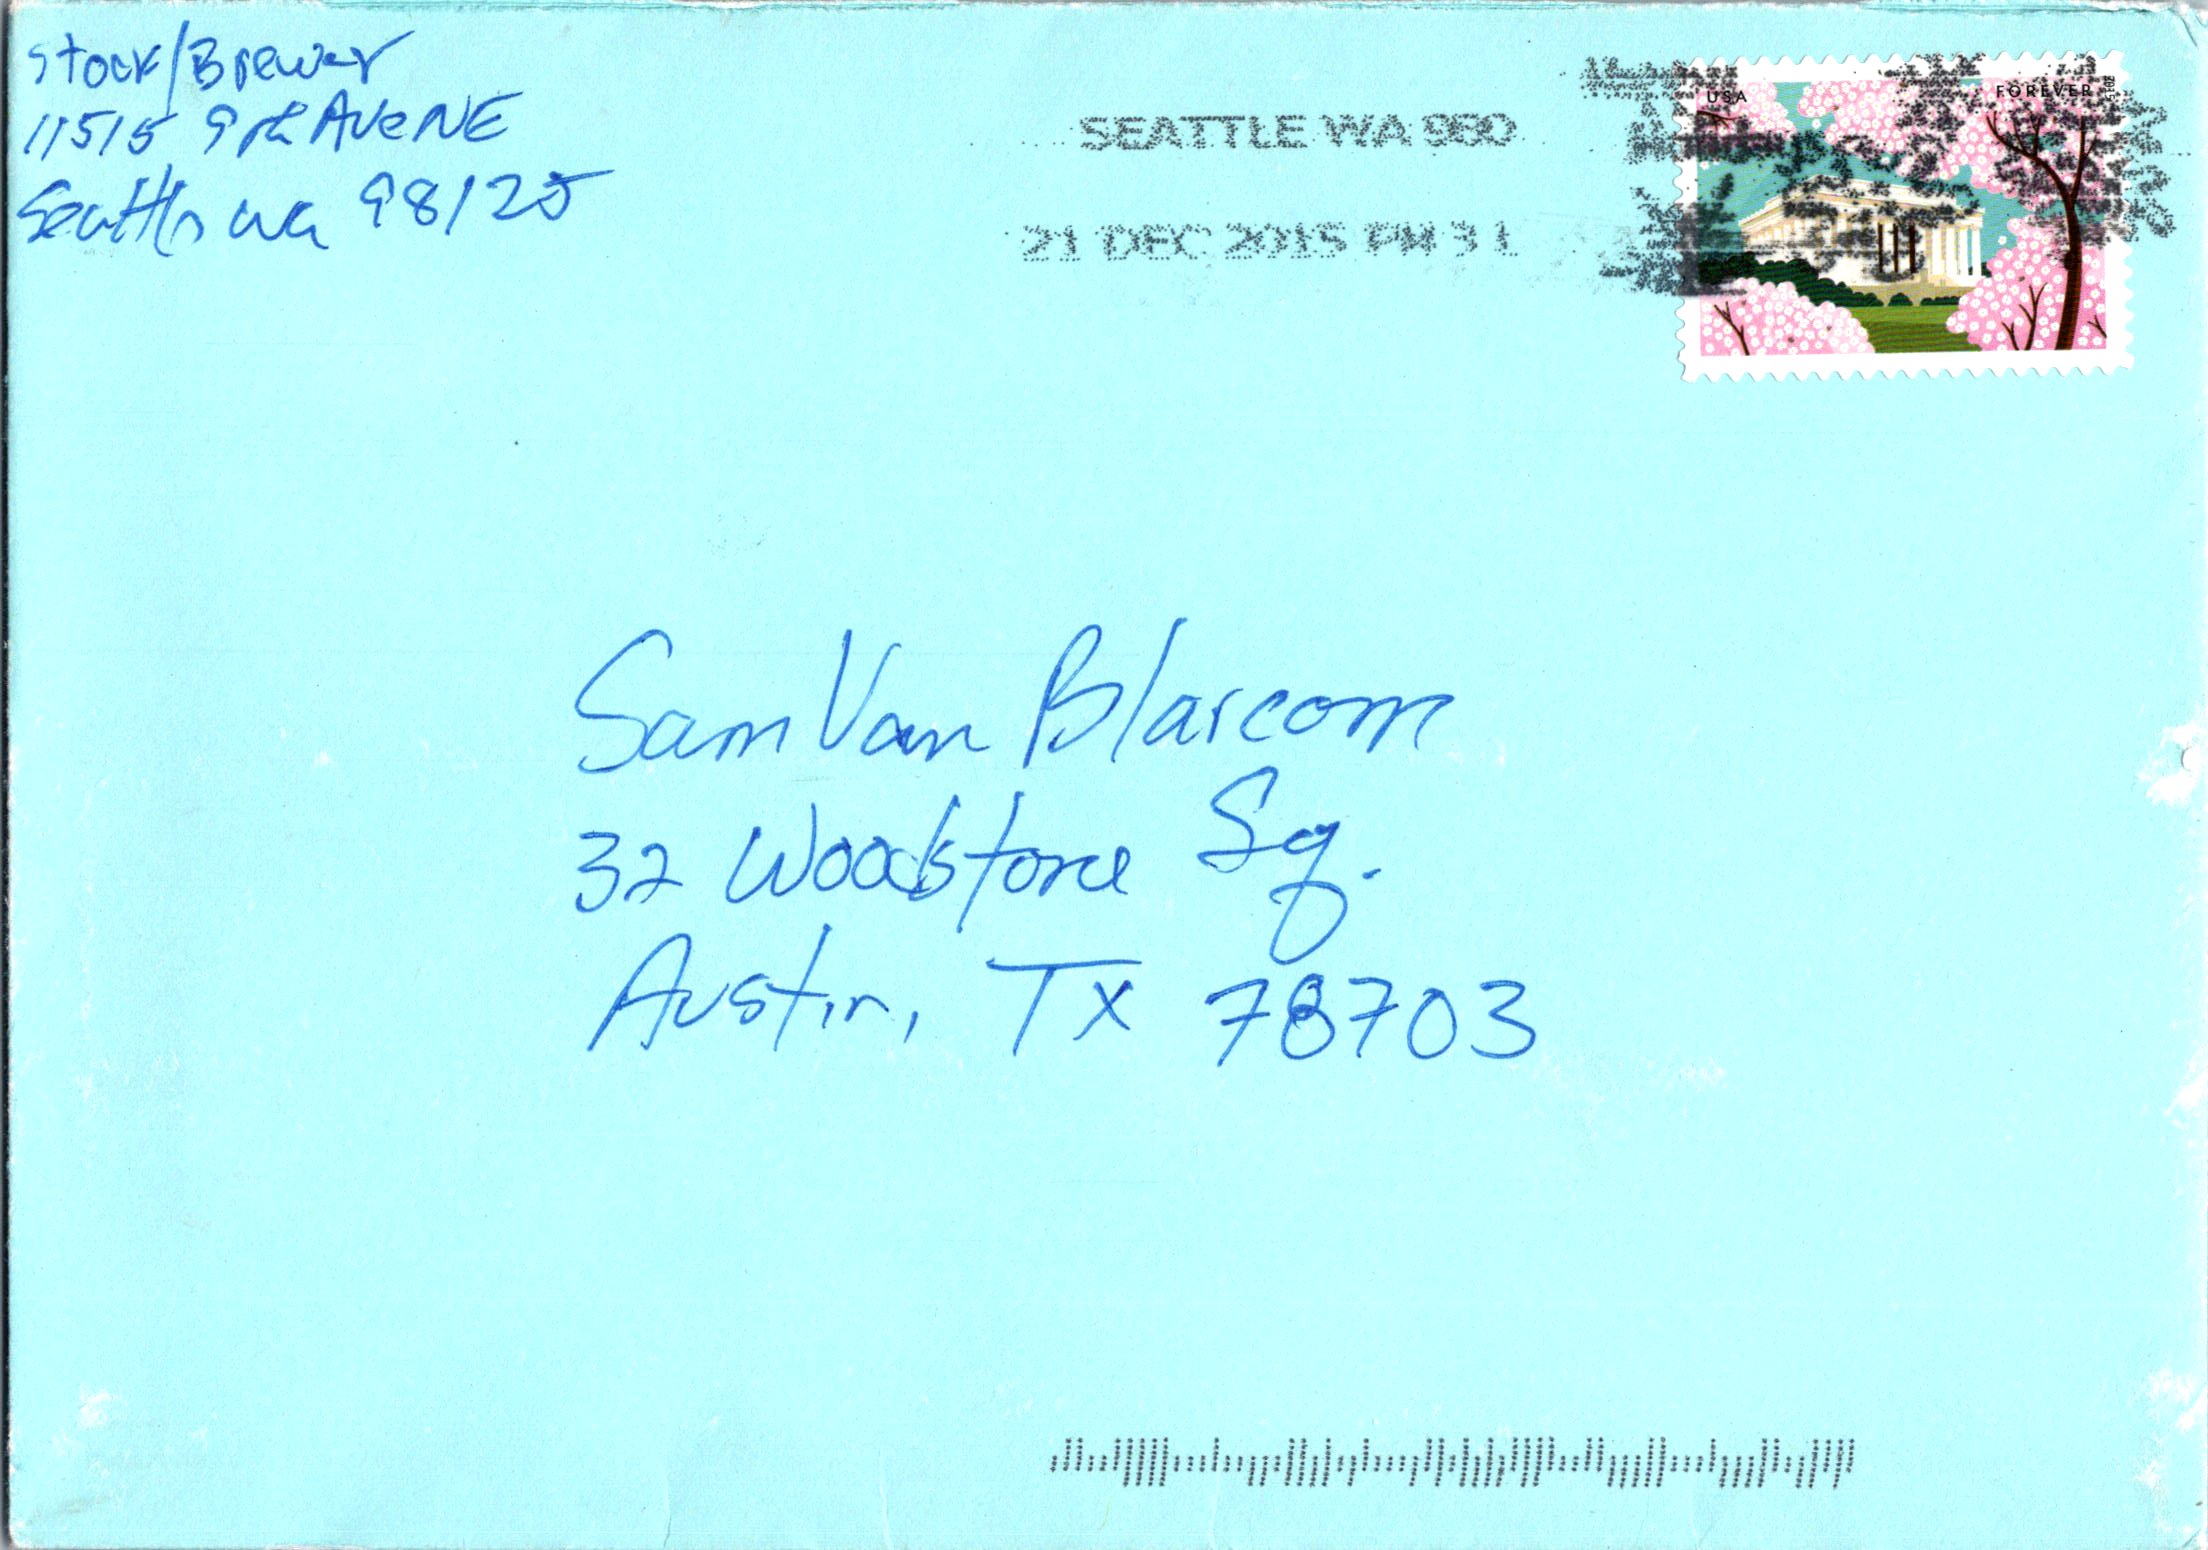 Stock/Brewer
11515 9th Ave NE
Seattle Wa 98125
SEATTLE WA 980
21 DEC 2015 PM 3 L
USA
FOREVER
2015
Sam Van Blarcom
32 Woodstone Sq.
Austin, Tx 78703